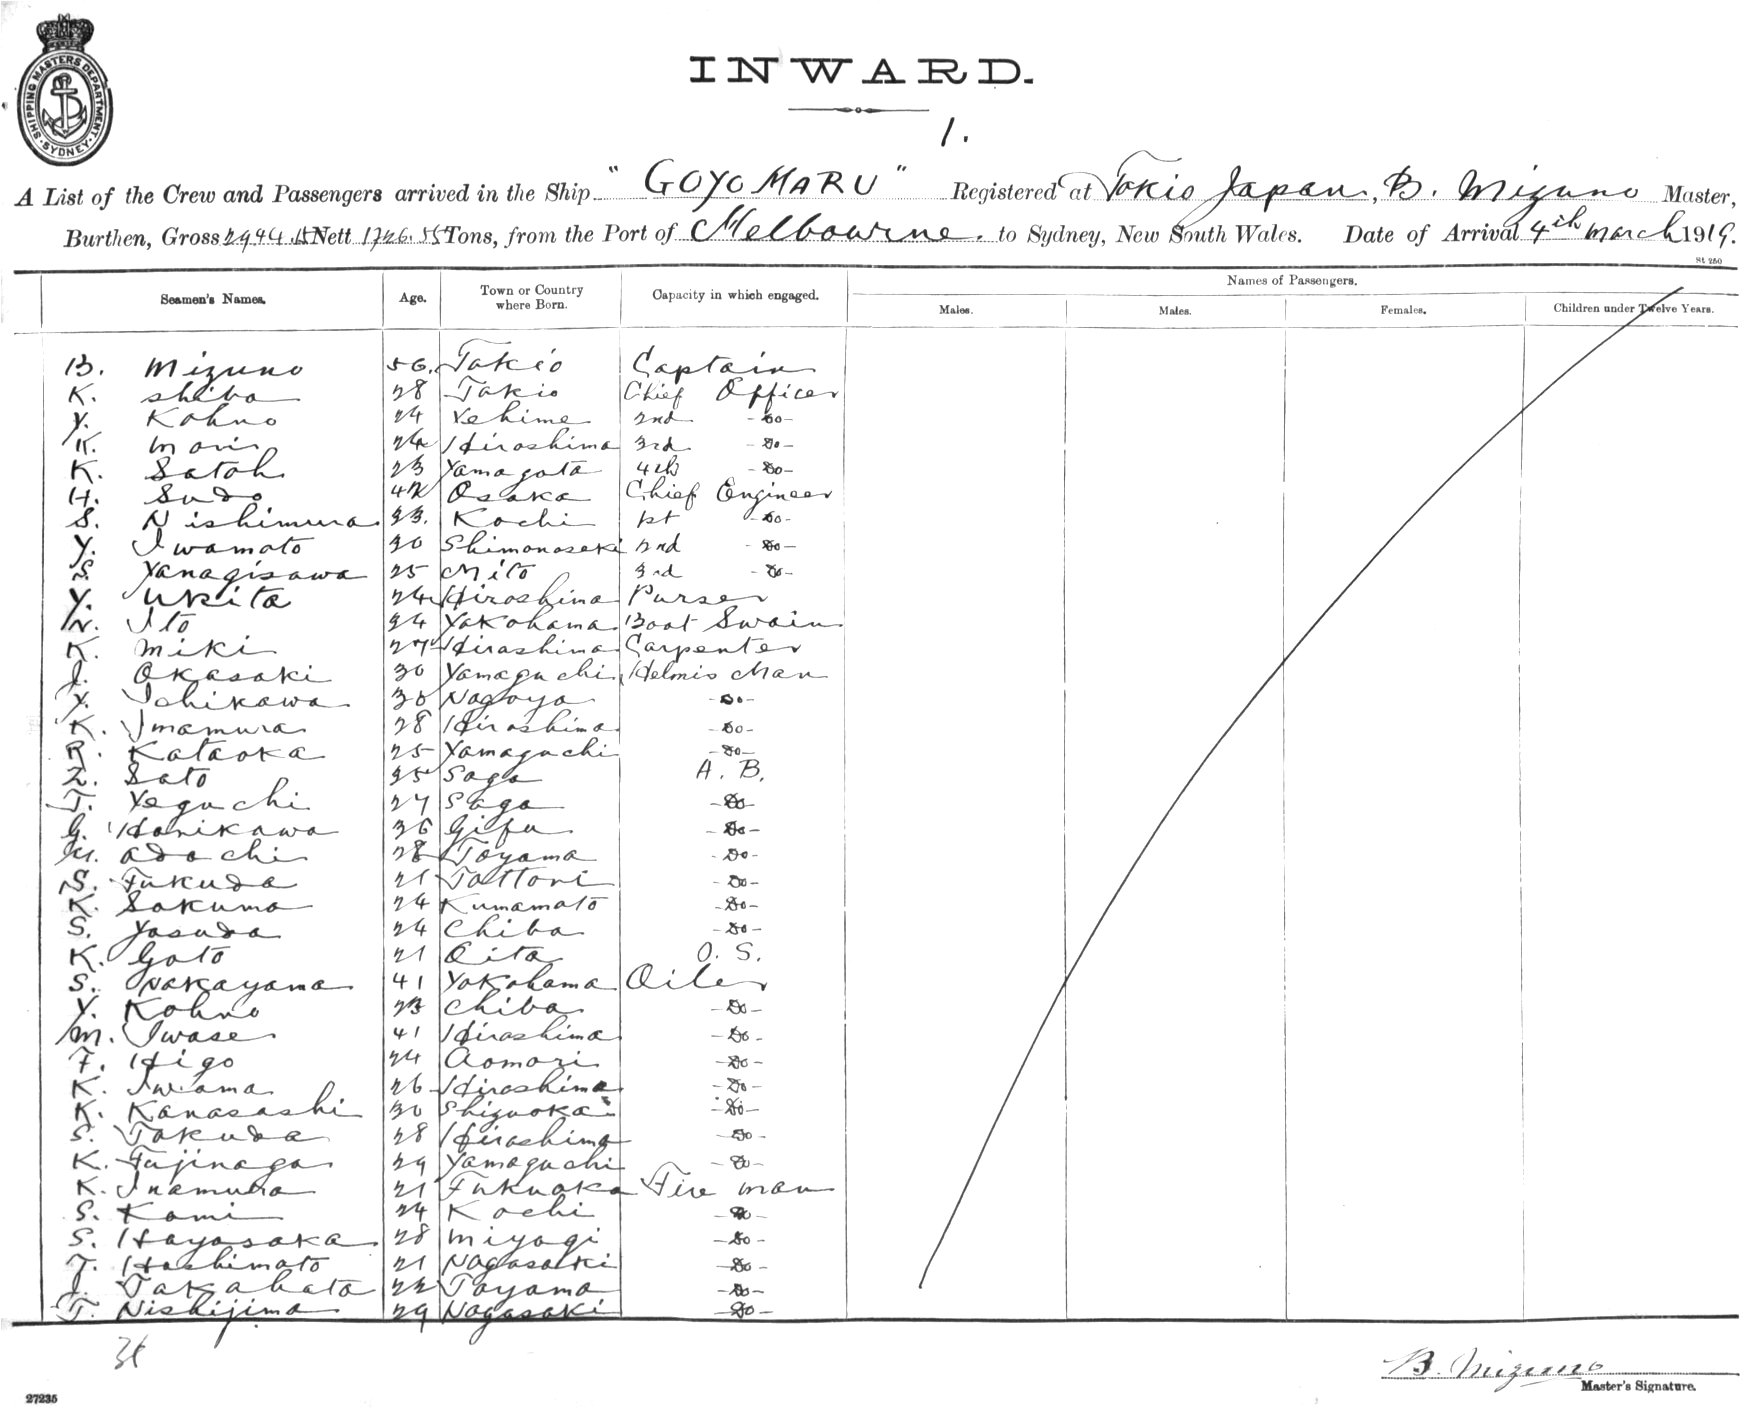 SHIPPING MASTERS DEPARTMENT. SYDNEY.
INWARD.
1.
A List of the Crew and Passengers arrived in the Ship "GOYO MARU" Registered at Tokio Japan, B. Mizuno Master,
Burthen, Gross 2944.15 Nett 1726.55 Tons, from the Port of Melbourne. to Sydney, New South Wales. Date of Arrival 4th March 1919.
St 250
Seamen's Names. Age. Town or Country where Born. Capacity in which engaged. Names of Passengers.
Males. Males. Females. Children under Twelve Years.
B. Mizuno 56. Tokio Captain
K. Shiba 28 Tokio Chief Officer
Y. Kohno 24 Yehime 2nd -Do-
K. Mori 24 Hiroshima 3rd -Do-
K. Satoh 23 Yamagata 4th -Do-
H. Sudo 42 Osaka Chief Engineer
S. Nishimura 33. Kochi 1st -Do-
Y. Iwamoto 30 Shimonoseki 2nd -Do-
S. Yanagisawa 25 Mito 3rd -Do-
Y. Ukita 24 Hiroshima Purser
N. Ito 34 Yokohama Boat Swain
K. Miki 27 Hiroshima Carpenter
J. Okasaki 30 Yamaguchi Helmis Man
Y. Ichikawa 30 Nagoya -Do-
K. Imamura 28 Hiroshima -Do-
R. Kataoka 25 Yamaguchi -Do-
Z. Sato 35 Saga A. B.
T. Yeguchi 27 Saga -Do-
G. Horikawa 36 Gifu -Do-
M. Adachi 28 Toyama -Do-
S. Fukuda 21 Tottori -Do-
K. Sakuma 24 Kumamoto -Do-
S. Yasuda 24 Chiba -Do-
K. Goto 21 Oita O. S.
S. Nakayama 41 Yokohama Oiler
Y. Kohno 23 Chiba -Do-
M. Iwase 41 Hiroshima -Do-
F. Higo 24 Aomori -Do-
K. Iwama 26 Hiroshima -Do-
K. Kanasashi 30 Shizuoka -Do-
S. Tokuda 28 Hiroshima -Do-
K. Fujinaga 29 Yamaguchi -Do-
K. Inamura 21 Fukuoka Fire man
S. Kami 24 Kochi -Do-
S. Hayasaka 28 Miyagi -Do-
T. Hashimoto 21 Nagasaki -Do-
J. Takahata 22 Toyama -Do-
T. Nishijima 29 Nagasaki -Do-
B. Mizuno
Master's Signature.
27235